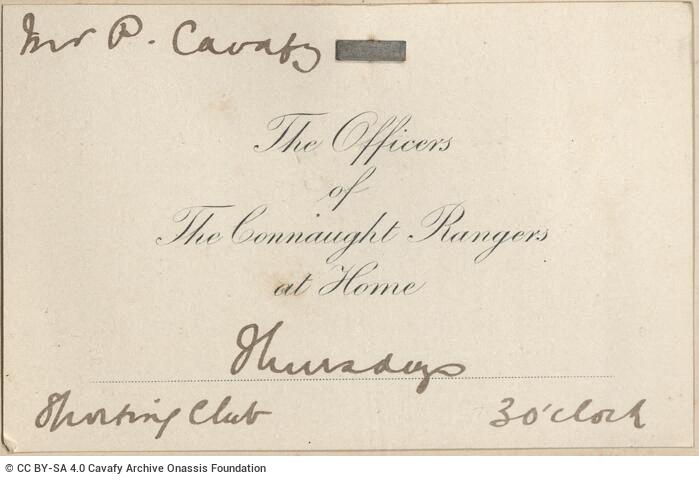 Mr P. Cavafy
The Officers
of
The Connaught Rangers
at Home
Thursdays
Sporting Club
3 o'clock
© CC BY-SA 4.0 Cavafy Archive Onassis Foundation